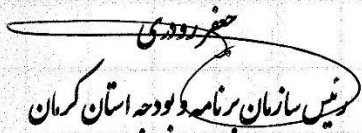 جعفر رودری
رئیس سازمان برنامه و بودجه استان کرمان